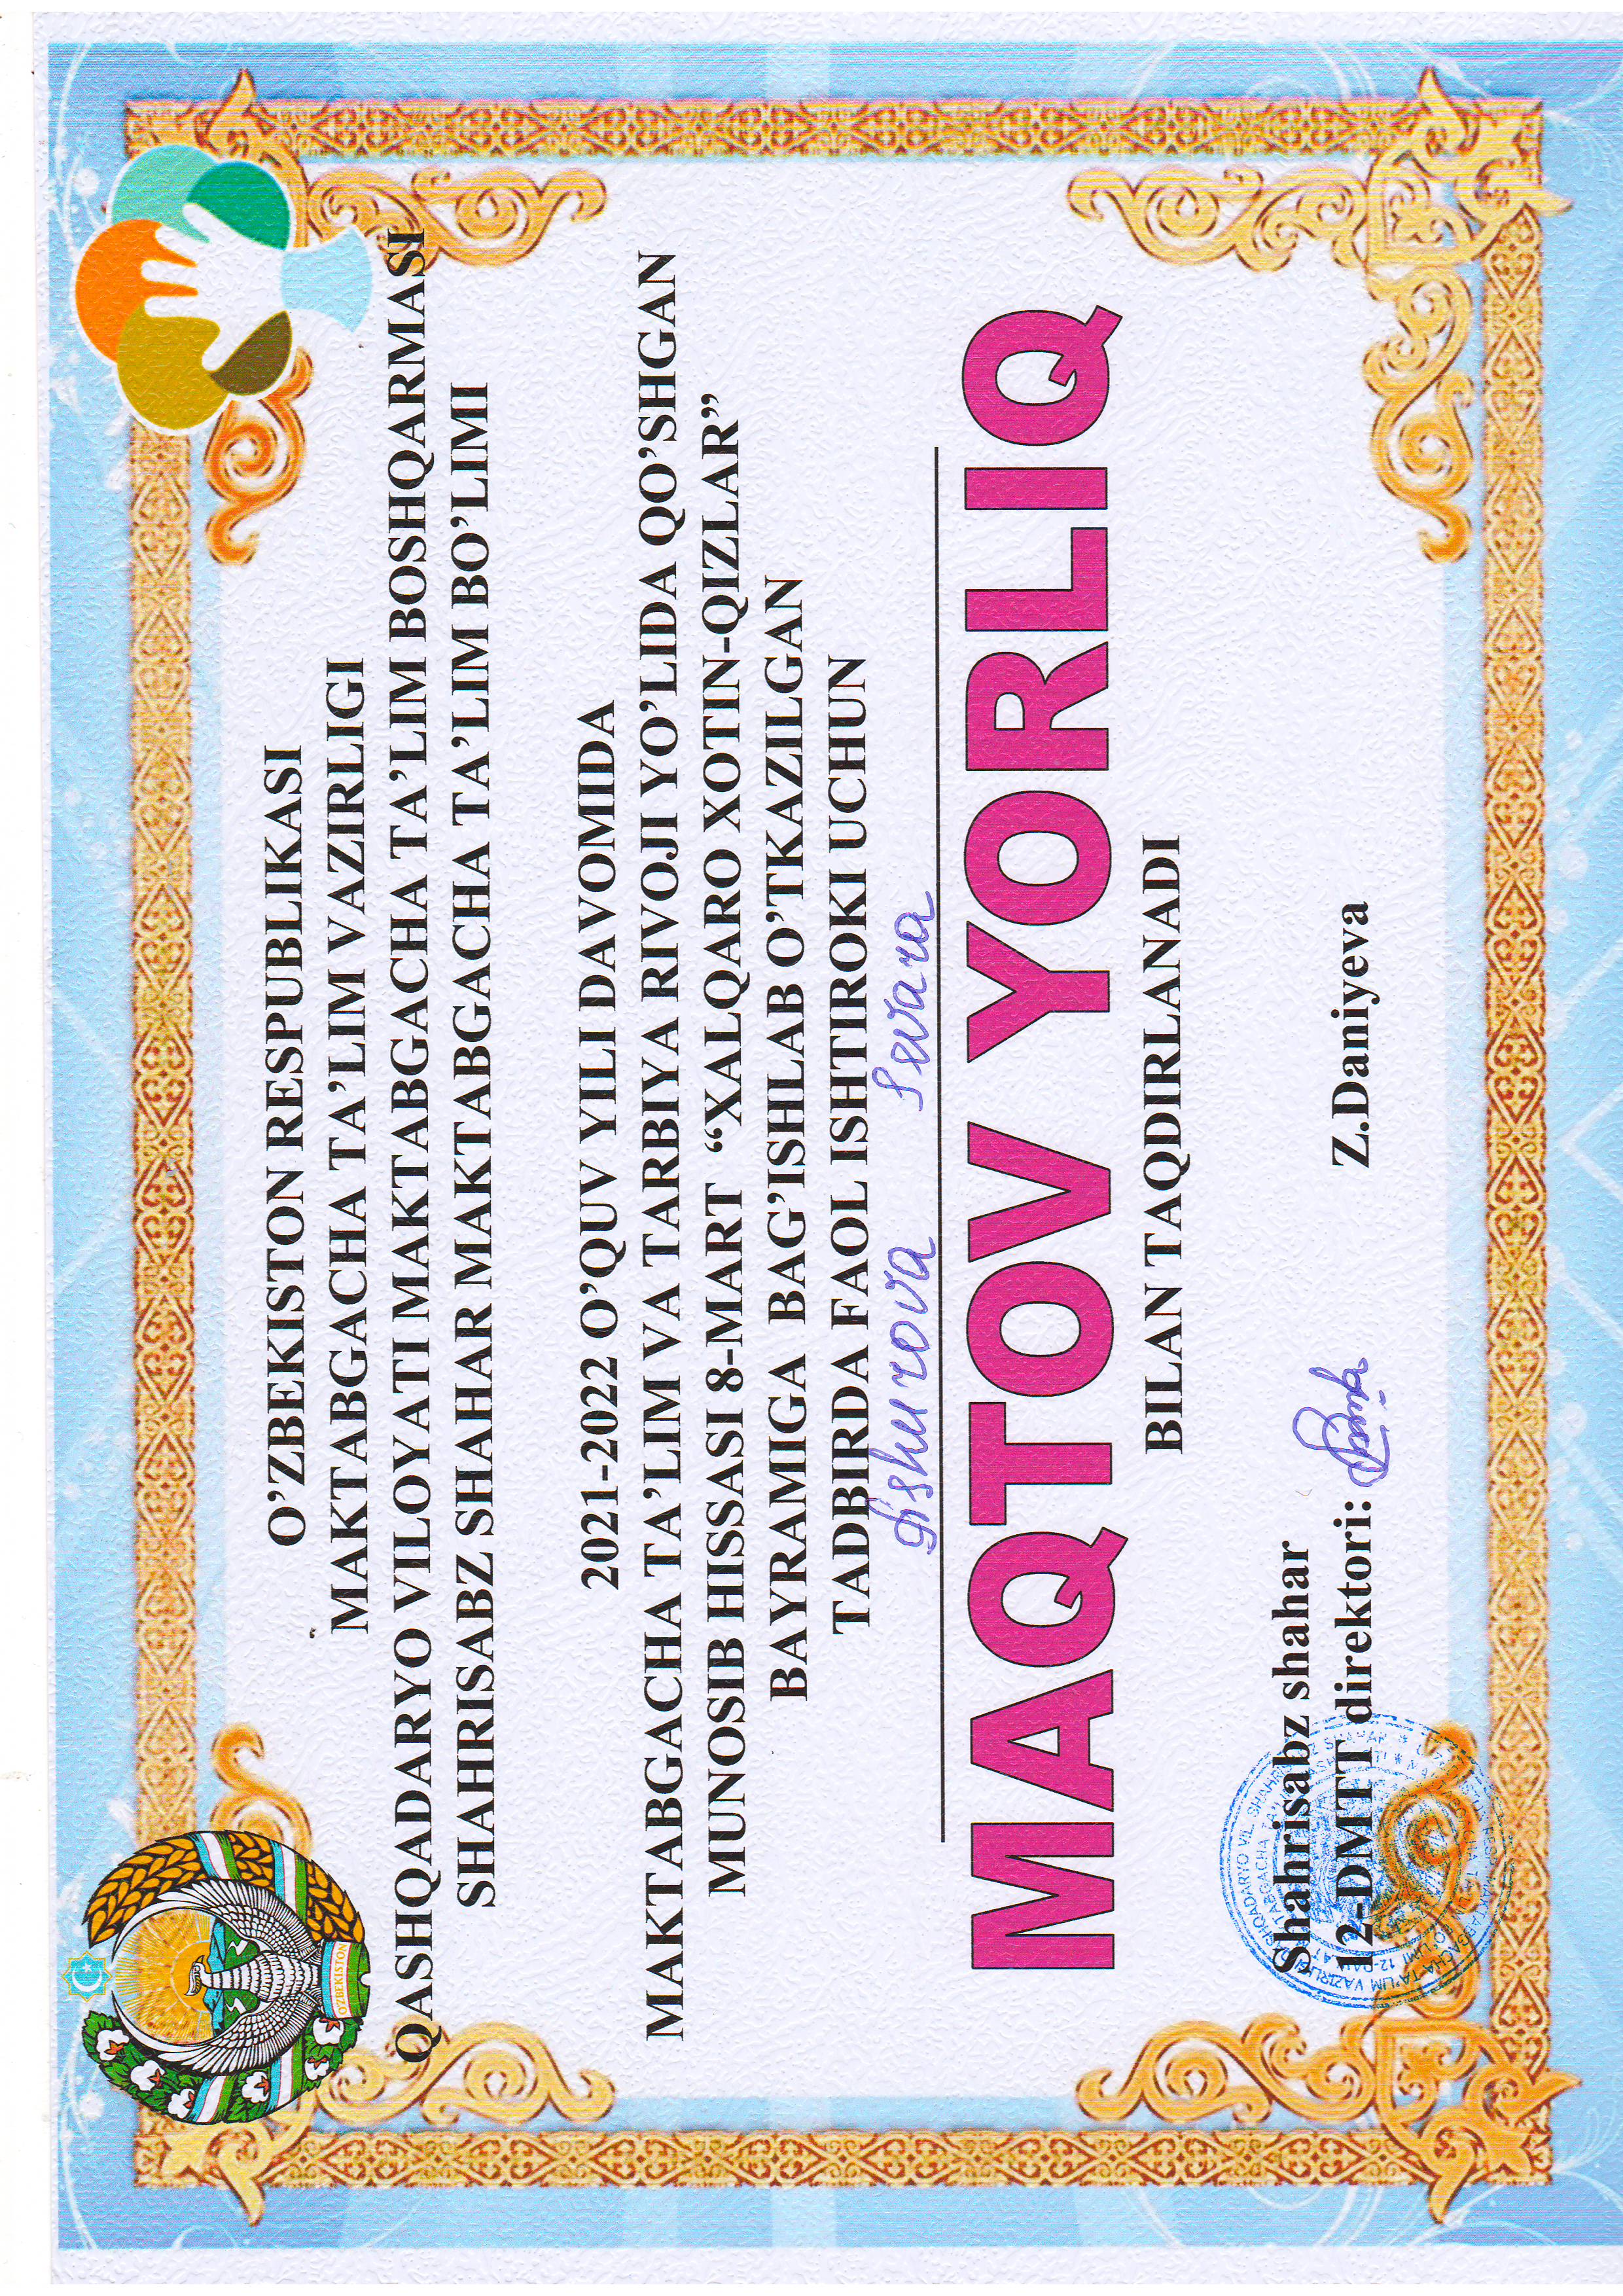 O’ZBEKISTON RESPUBLIKASI
MAKTABGACHA TA’LIM VAZIRLIGI
QASHQADARYO VILOYATI MAKTABGACHA TA’LIM BOSHQARMASI
SHAHRISABZ SHAHAR MAKTABGACHA TA’LIM BO’LIMI
2021-2022 O’QUV YILI DAVOMIDA
MAKTABGACHA TA’LIM VA TARBIYA RIVOJI YO’LIDA QO’SHGAN
MUNOSIB HISSASI 8-MART “XALQARO XOTIN-QIZLAR”
BAYRAMIGA BAG’ISHLAB O’TKAZILGAN
TADBIRDA FAOL ISHTIROKI UCHUN
Ashurova Sevara
MAQTOV YORLIQ
BILAN TAQDIRLANADI
Shahrisabz shahar
12-DMTT direktori: Z.Daniyeva
O'ZBEKISTON